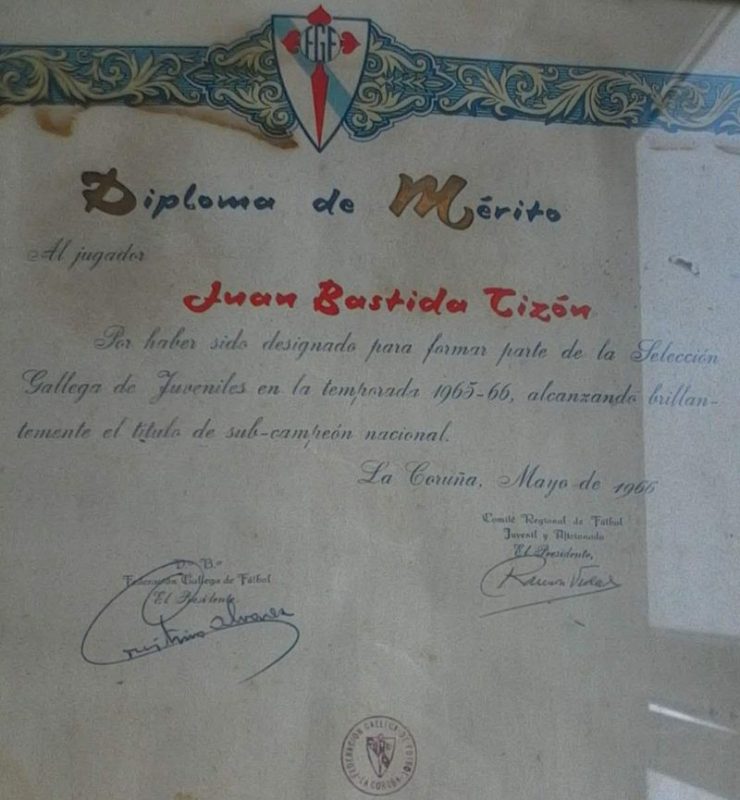 FGF
Diploma de Mérito
Al jugador
Juan Bastida Tizón
Por haber sido designado para formar parte de la Selección
Gallega de Juveniles en la temporada 1965-66, alcanzando brillan-
temente el título de sub-campeón nacional.
La Coruña, Mayo de 1966
Comité Regional de Fútbol
Juvenil y Aficionado
El Presidente,
Ramón Vidal
V.º B.º
Federación Gallega de Fútbol
El Presidente
Cristino Alvarez
FEDERACIÓN GALLEGA DE FUTBOL
LA CORUÑA